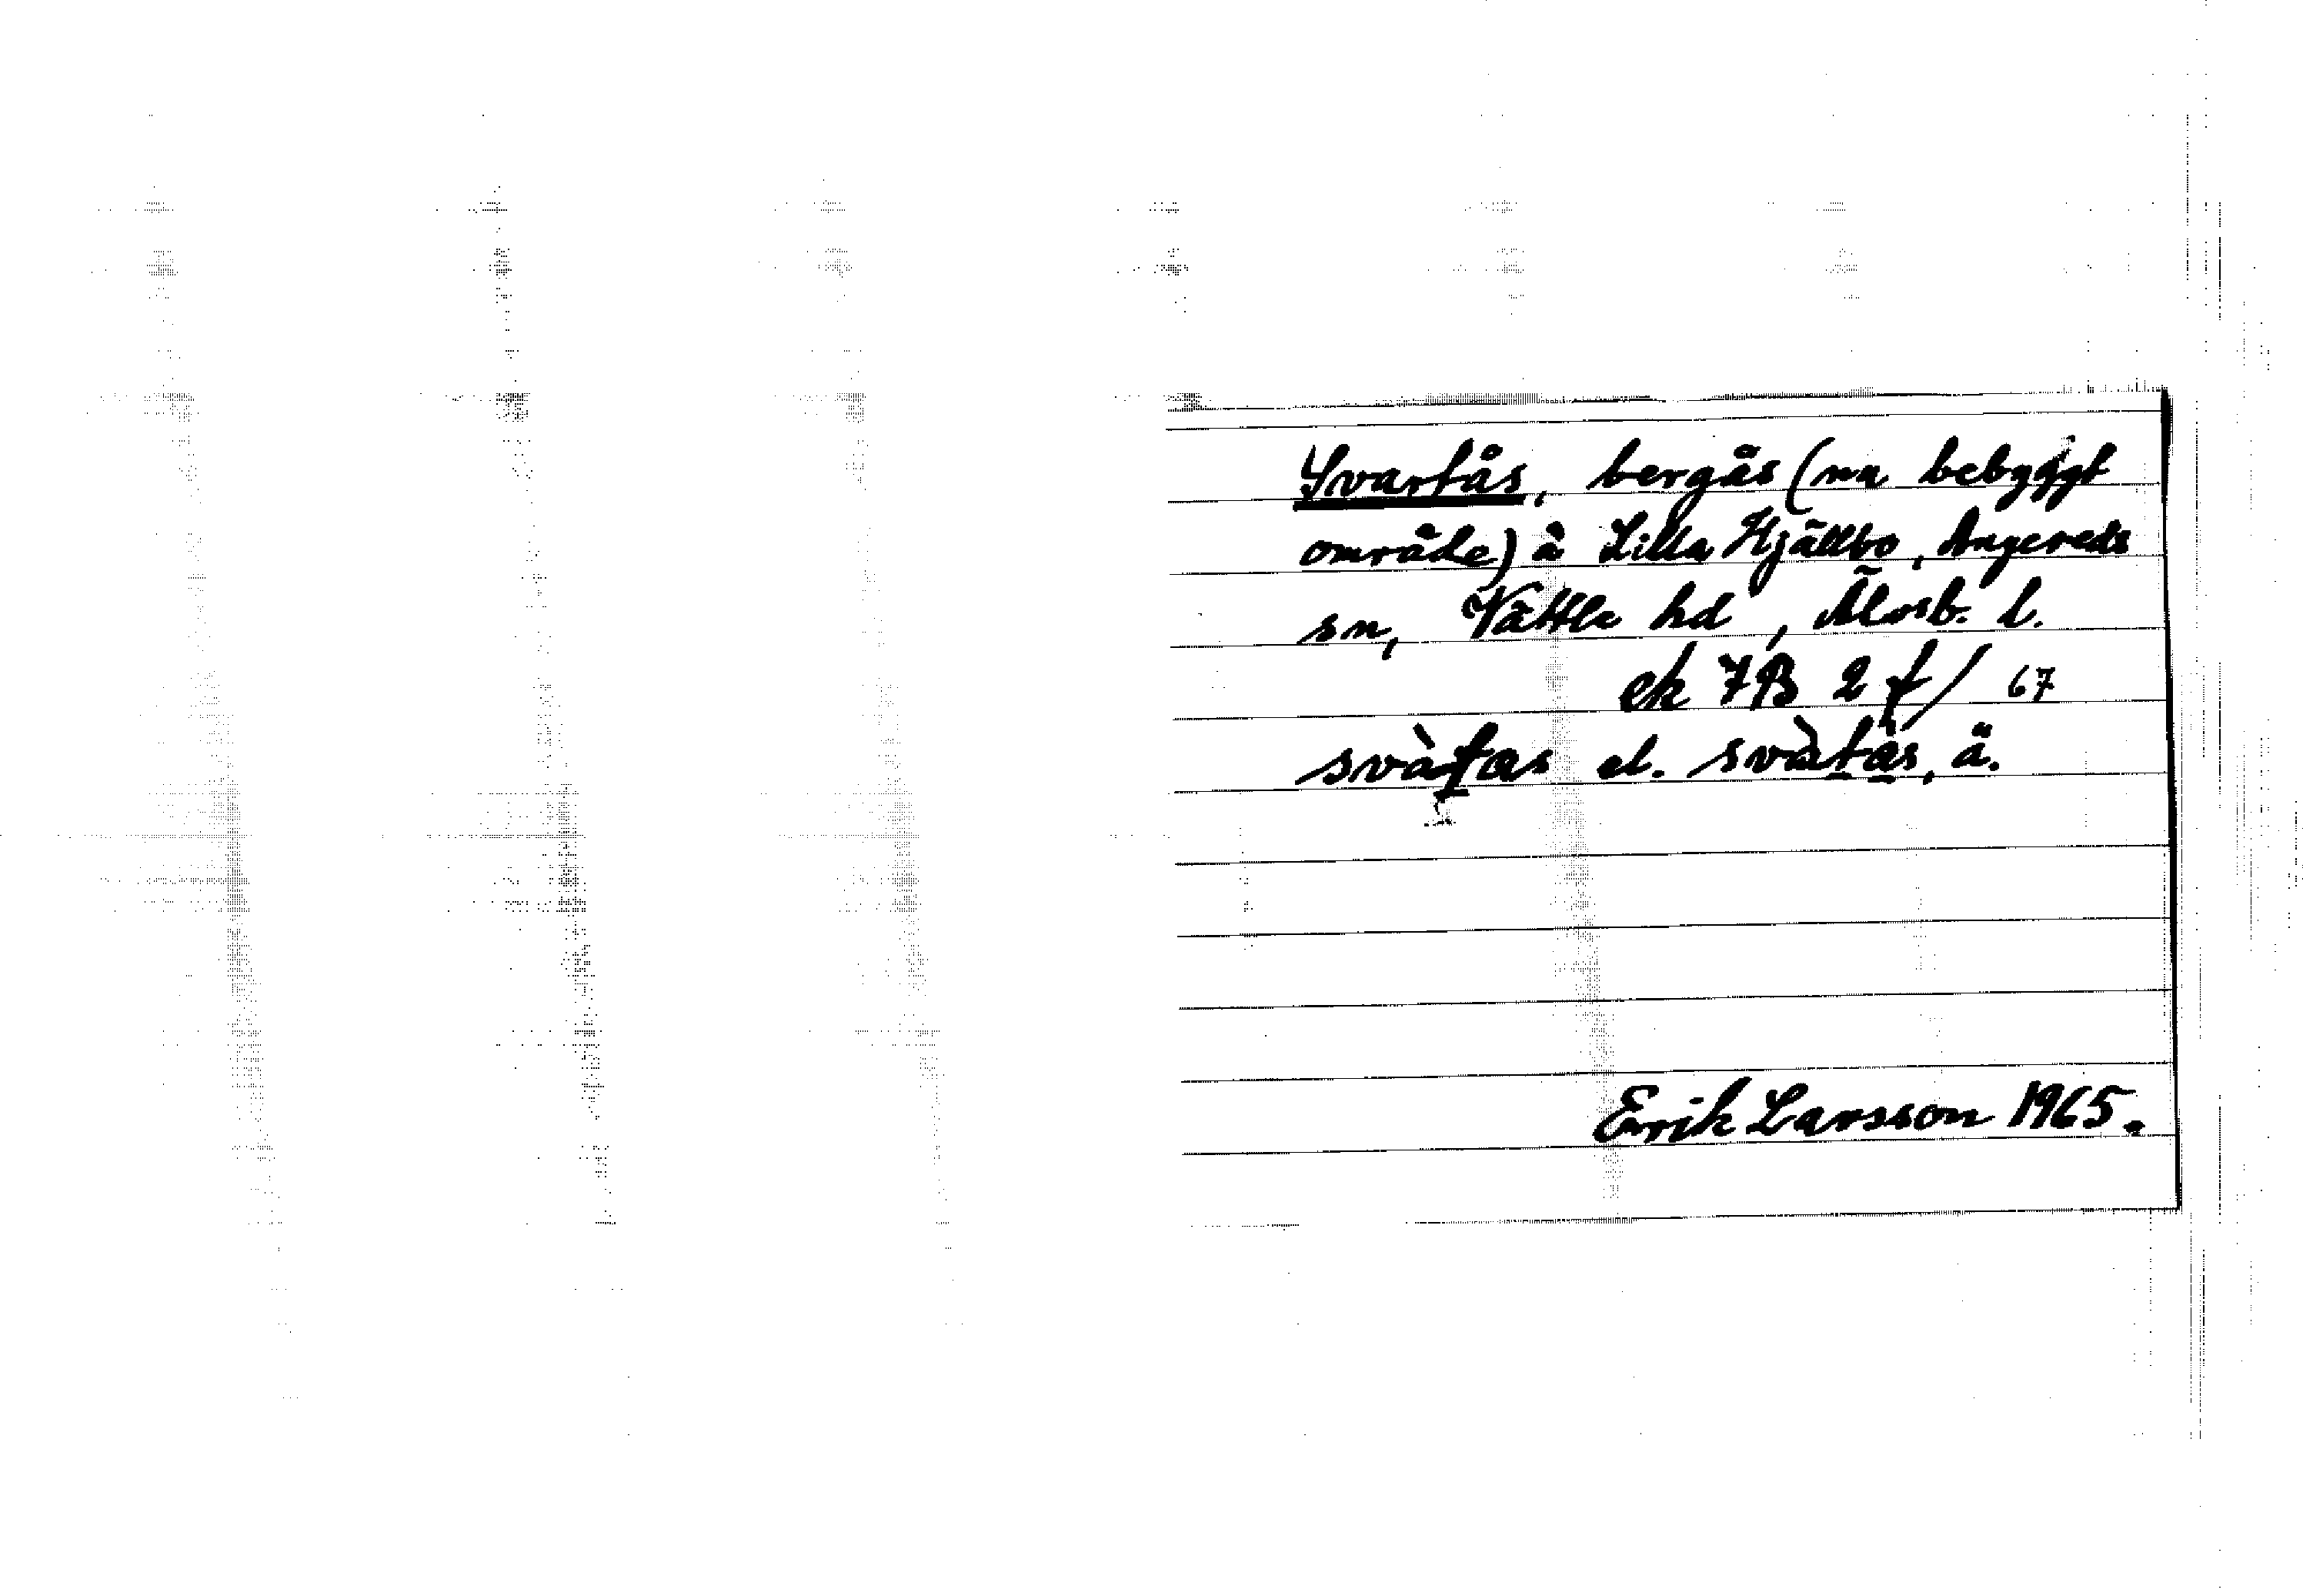 Svartås, bergås (nu bebyggt
område) å Lilla Hjällbo, Angereds
sn, Vättle hd, Älvsb. l.
ek 7B 2 f/ 67
svàtas el. svàtås, ä.
Erik Larsson 1965.